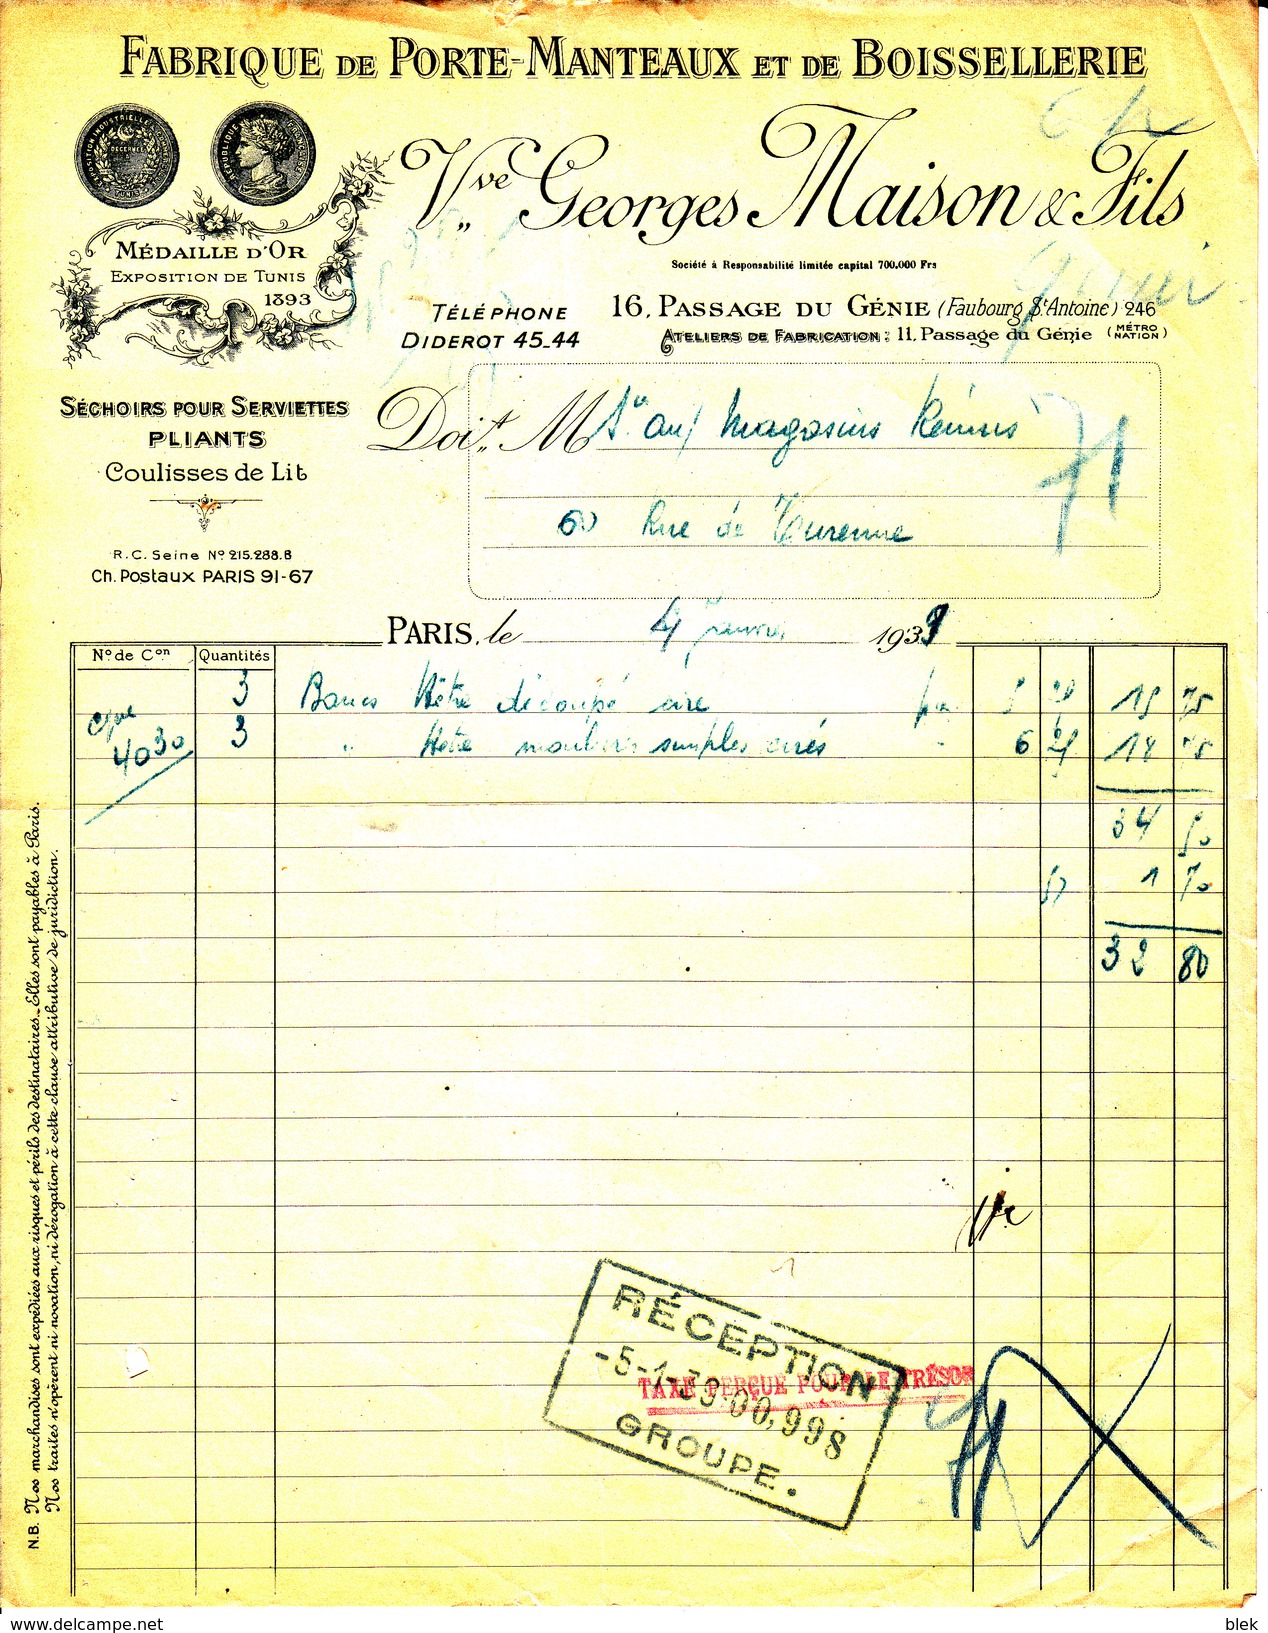 FABRIQUE DE PORTE-MANTEAUX ET DE BOISSELLERIE
Vve Georges Maison & Fils
Société à Responsabilité limitée capital 700.000 Frs
MÉDAILLE D'OR
EXPOSITION DE TUNIS
1893
TÉLÉPHONE
DIDEROT 45-44
16, PASSAGE DU GÉNIE (Faubourg St Antoine) 246
ATELIERS DE FABRICATION : 11, Passage du Génie (MÉTRO NATION)
SÉCHOIRS POUR SERVIETTES
PLIANTS
Coulisses de Lit
R.C. Seine No 215.288.B
Ch. Postaux PARIS 91-67
Doit M Magasins Réunis
60 Rue de Turenne
71
PARIS, le 4 Janvier 1939
No de Con Quantités
3 Bancs Hêtre découpé ciré 5 25 15 75
4030 3 " Hêtre moulures simples cirés 6 25 18 75
34 50
1 70
32 80
RÉCEPTION
-5-1-39.00,998
GROUPE.
TAXE PERÇUE POUR LE TRÉSOR
N.B. Nos marchandises sont expédiées aux risques et périls des destinataires. Elles sont payables à Paris.
Nos traites n'opèrent ni novation, ni dérogation à cette clause attributive de juridiction.
www.delcampe.net
blek